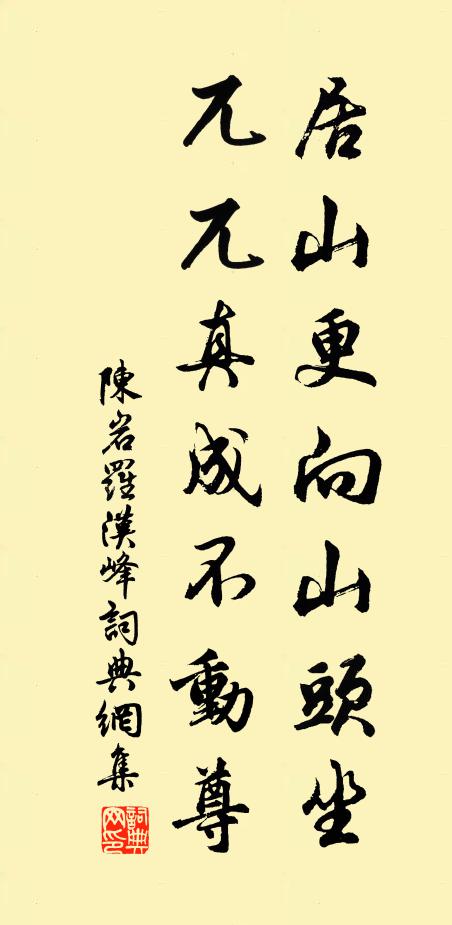 居山更向山頭坐
兀兀真成不動尊
陳岩羅漢峰詞典網集
詞典网印